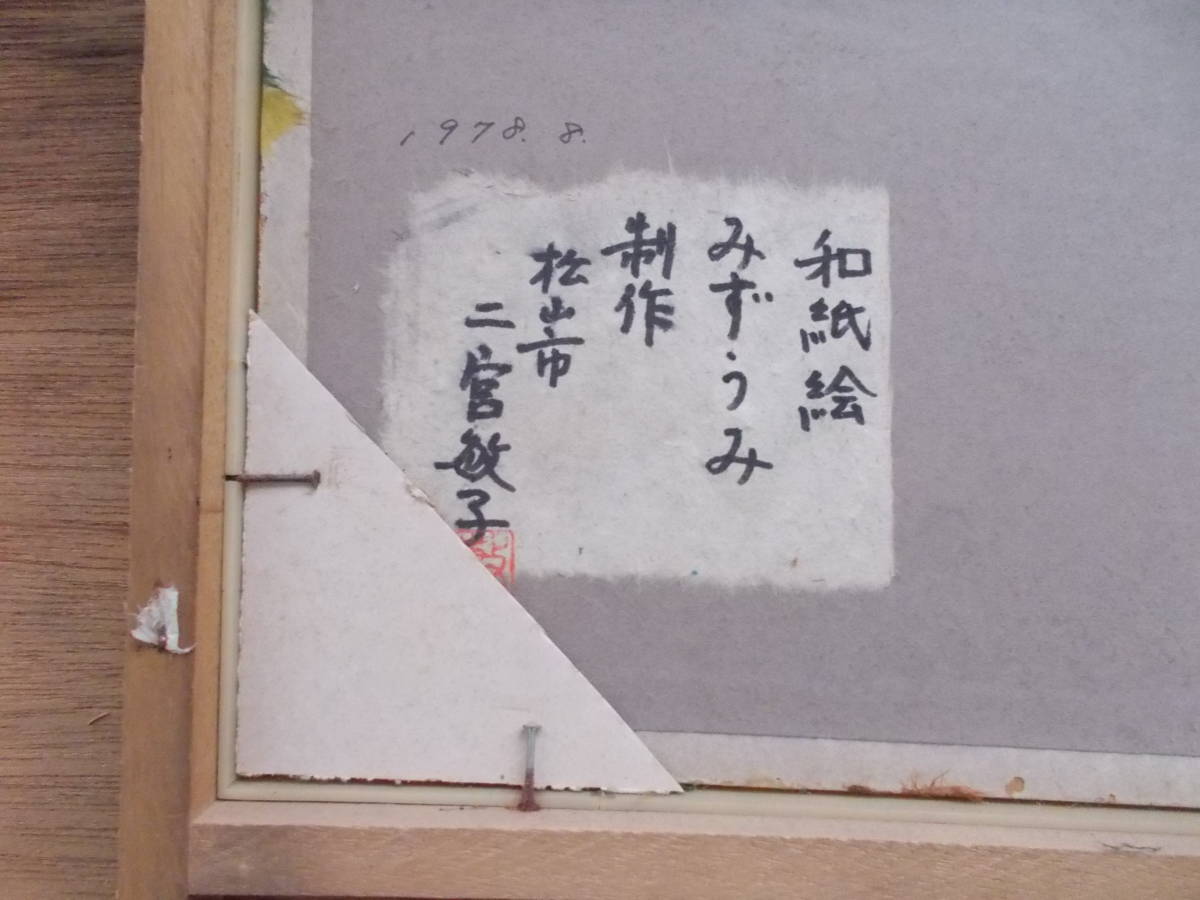 1978. 8.
和紙絵
みずうみ
制作
松山市
二宮敏子